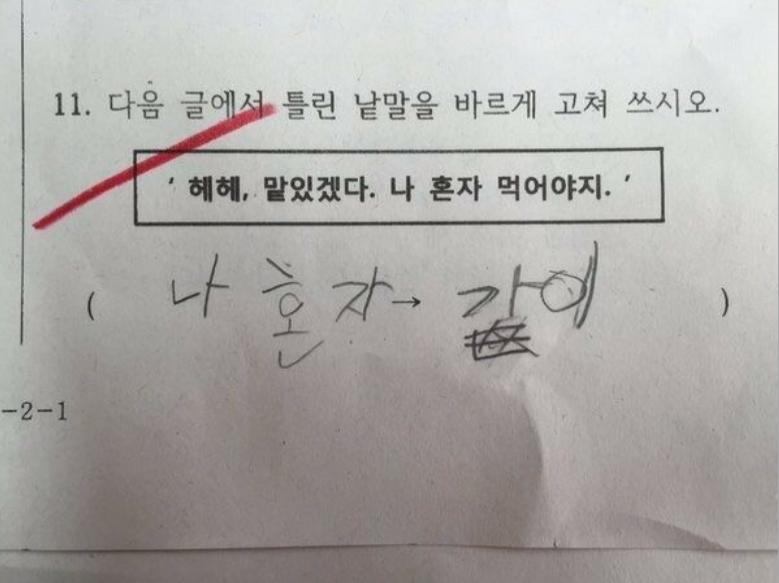 11. 다음 글에서 틀린 낱말을 바르게 고쳐 쓰시오.
‘ 헤헤, 맡있겠다. 나 혼자 먹어야지. ’
( 나 혼자 → 같이 )
-2-1